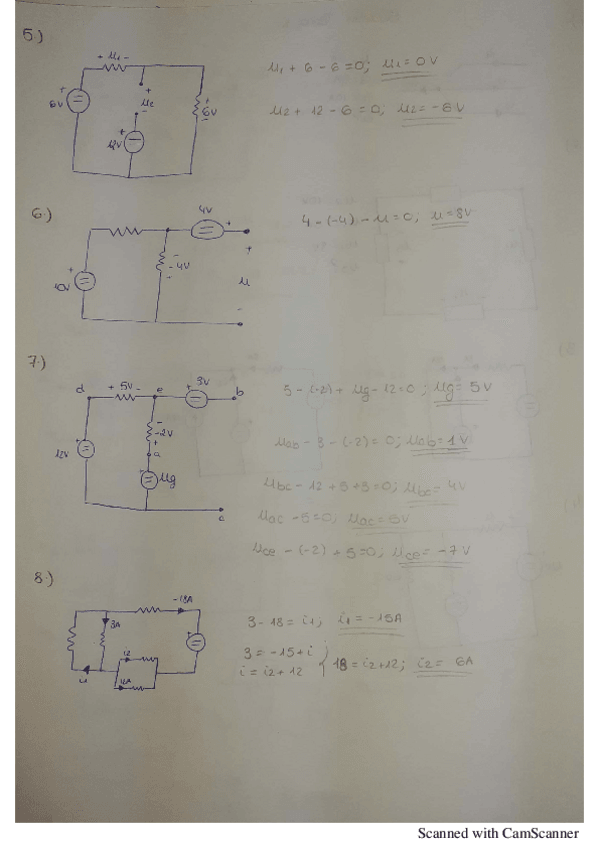 5.)
+ u1 -
6V
+
u2
-
12V
6V
u1 + 6 - 6 = 0; u1 = 0V
u2 + 12 - 6 = 0; u2 = -6V
6.)
4V
10V
-4V
u
4 - (-4) - u = 0, u = 8V
7.)
d + 5V - e 3V b
12V
-2V
a
ug
c
5 - (-2) + ug - 12 = 0; ug = 5V
uab - 3 - (-2) = 0; uab = 1V
ubc - 12 + 5 + 3 = 0; ubc = 4V
uac - 5 = 0; uac = 5V
uce - (-2) + 5 = 0, uce = -7V
8.)
-18A
3A
i2
i1
12A
3 - 18 = i1, i1 = -15A
3 = -15 + i
i = i2 + 12
18 = i2 + 12; i2 = 6A
Scanned with CamScanner